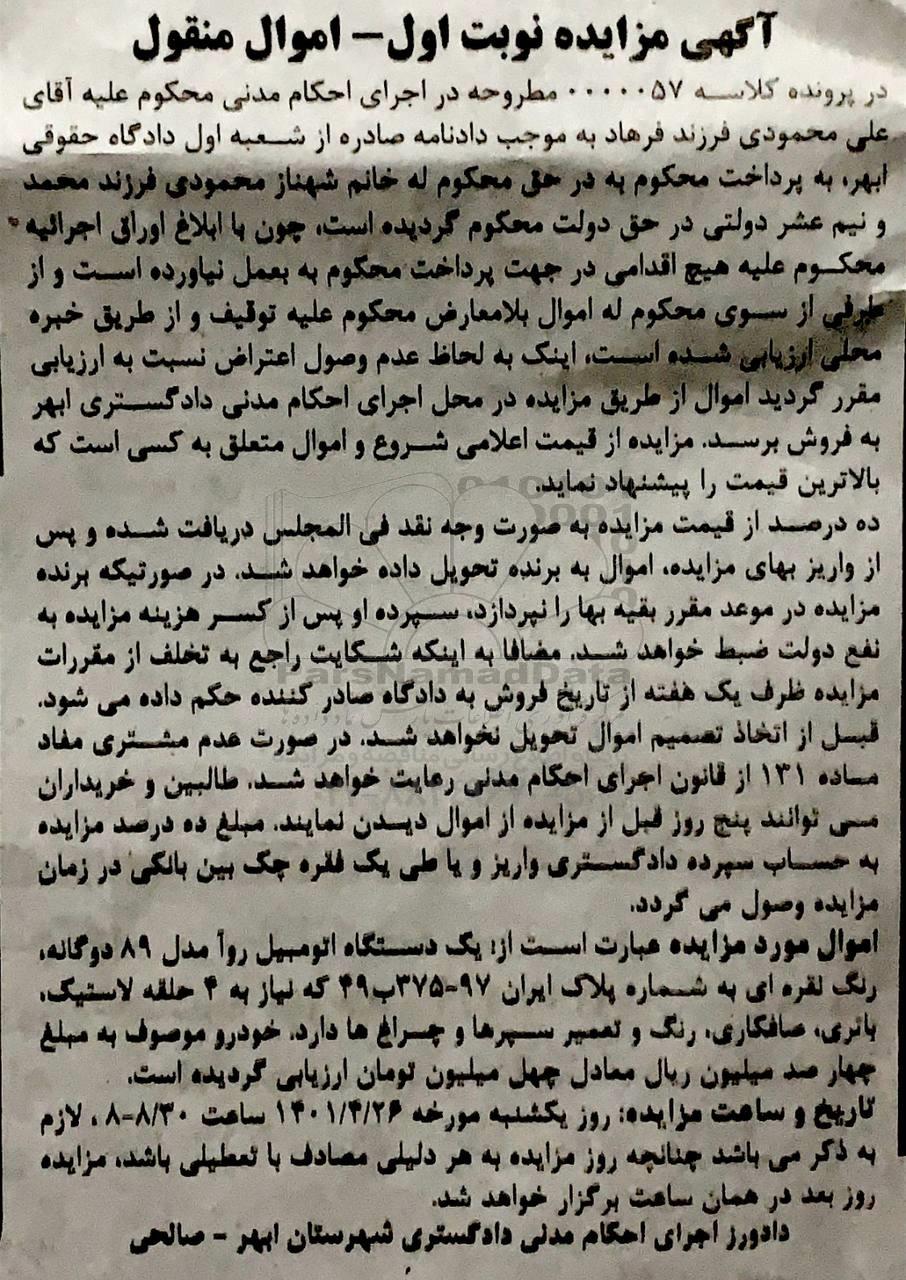 آگهی مزایده نوبت اول– اموال منقول
در پرونده کلاسه ۰۰۰۰۰۵۷ مطروحه در اجرای احکام مدنی محکوم علیه آقای
علی محمودی فرزند فرهاد به موجب دادنامه صادره از شعبه اول دادگاه حقوقی
ابهر، به پرداخت محکوم به در حق محکوم له خانم شهناز محمودی فرزند محمد
و نیم عشر دولتی در حق دولت محکوم گردیده است، چون با ابلاغ اوراق اجرائیه
محکوم علیه هیچ اقدامی در جهت پرداخت محکوم به بعمل نیاورده است و از
طرفی از سوی محکوم له اموال بلامعارض محکوم علیه توقیف و از طریق خبره
محلی ارزیابی شده است، اینک به لحاظ عدم وصول اعتراض نسبت به ارزیابی
مقرر گردید اموال از طریق مزایده در محل اجرای احکام مدنی دادگستری ابهر
به فروش برسد. مزایده از قیمت اعلامی شروع و اموال متعلق به کسی است که
بالاترین قیمت را پیشنهاد نماید.
ده درصد از قیمت مزایده به صورت وجه نقد فی المجلس دریافت شده و پس
از واریز بهای مزایده، اموال به برنده تحویل داده خواهد شد. در صورتیکه برنده
مزایده در موعد مقرر بقیه بها را نپردازد، سپرده او پس از کسر هزینه مزایده به
نفع دولت ضبط خواهد شد. مضافا به اینکه شکایت راجع به تخلف از مقررات
ParsNamadData
مزایده ظرف یک هفته از تاریخ فروش به دادگاه صادر کننده حکم داده می شود.
قبل از اتخاذ تصمیم اموال تحویل نخواهد شد. در صورت عدم مشتری مفاد
ماده ۱۳۱ از قانون اجرای احکام مدنی رعایت خواهد شد. طالبین و خریداران
می توانند پنج روز قبل از مزایده از اموال دیدن نمایند. مبلغ ده درصد مزایده
به حساب سپرده دادگستری واریز و یا طی یک فقره چک بین بانکی در زمان
مزایده وصول می گردد.
اموال مورد مزایده عبارت است از: یک دستگاه اتومبیل روآ مدل ۸۹ دوگانه،
رنگ نقره ای به شماره پلاک ایران ۹۷-۳۷۵ب۴۹ که نیاز به ۴ حلقه لاستیک،
باتری، صافکاری، رنگ و تعمیر سپرها و چراغ ها دارد. خودرو موصوف به مبلغ
چهار صد میلیون ریال معادل چهل میلیون تومان ارزیابی گردیده است.
تاریخ و ساعت مزایده: روز یکشنبه مورخه ۱۴۰۱/۴/۲۶ ساعت ۸/۳۰-۸ ، لازم
به ذکر می باشد چنانچه روز مزایده به هر دلیلی مصادف با تعطیلی باشد، مزایده
روز بعد در همان ساعت برگزار خواهد شد.
دادورز اجرای احکام مدنی دادگستری شهرستان ابهر – صالحی